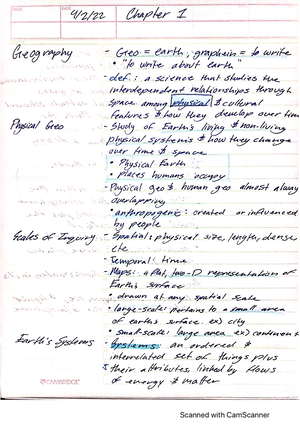 DATE 9/2/22 Chapter 1
Geography - Geo = earth, graphein = to write
• "to write about earth"
- def.: a science that studies the
interdependent relationships through
space among physical & cultural
features & how they develop over time
Physical Geo - Study of Earth's living & non-living
physical systems & how they change
over time & space
• Physical Earth
• places humans occupy
- Physical geo & human geo almost always
overlapping
• anthropogenic: created or influenced
by people
Scales of Inquiry - Spatial: physical size, length, dense
etc
- Temporal: time
- Maps: a flat, two-D representation of
Earth's surface
• drawn at any spatial scale
• large-scale: pertains to a small area
of earth's surface. ex) city
• small-scale: large area ex) continent
Earth's Systems - Systems: an ordered &
interrelated set of things plus
their attributes, linked by flows
of energy & matter
CAMBRIDGE
Scanned with CamScanner